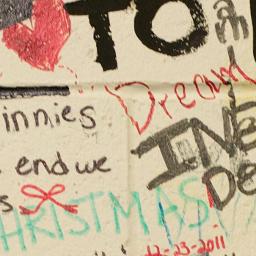 TO
am
Dream
innies
INDe
end we
De
s
CHRISTMAS
12-23-2011